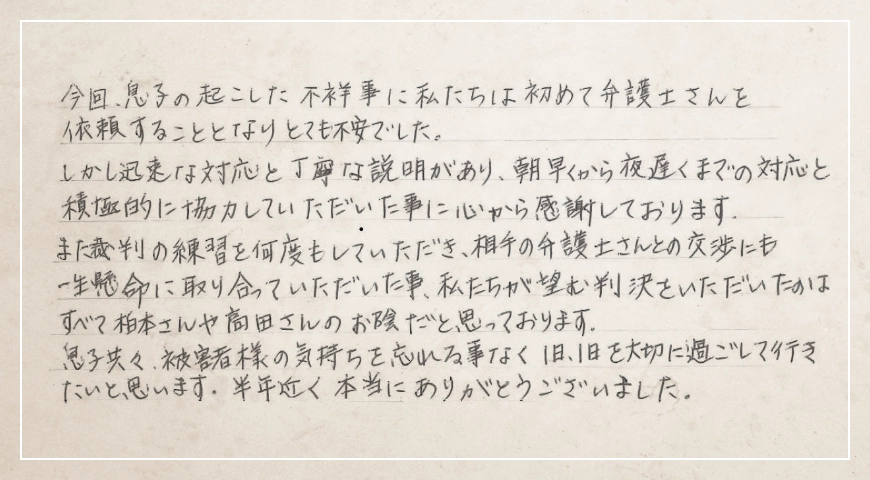 今回、息子の起こした不祥事に私たちは初めて弁護士さんを
依頼することとなりとても不安でした。
しかし迅速な対応と丁寧な説明があり、朝早くから夜遅くまでの対応と
積極的に協力していただいた事に心から感謝しております。
また裁判の練習を何度もしていただき、相手の弁護士さんとの交渉にも
一生懸命に取り合っていただいた事、私たちが望む判決をいただいたのは
すべて柏本さんや高田さんのお陰だと思っております。
息子共々、被害者様の気持ちを忘れる事なく1日、1日を大切に過ごして行き
たいと思います。半年近く本当にありがとうございました。